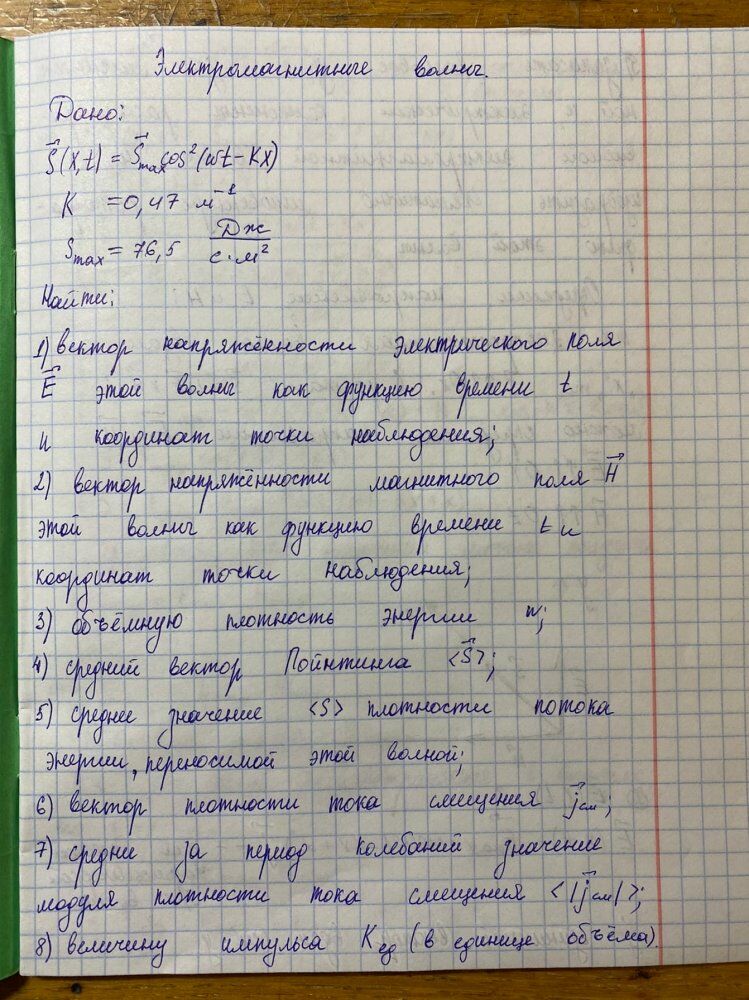 Электромагнитные волны.
Дано:
S⃗(x,t) = S⃗max cos²(ωt - Kx)
K = 0,47 м⁻¹
Smax = 76,5 Дж/с·м²
Найти:
1) вектор напряжённости электрического поля
E⃗ этой волны как функцию времени t
и координат точки наблюдения;
2) вектор напряжённости магнитного поля H⃗
этой волны как функцию времени t и
координат точки наблюдения;
3) объёмную плотность энергии w;
4) средний вектор Пойнтинга <S⃗>;
5) среднее значение <S> плотности потока
энергии, переносимой этой волной;
6) вектор плотности тока смещения j⃗см;
7) среднее за период колебаний значение
модуля плотности тока смещения <|j⃗см|>;
8) величину импульса Kед (в единице объёма).